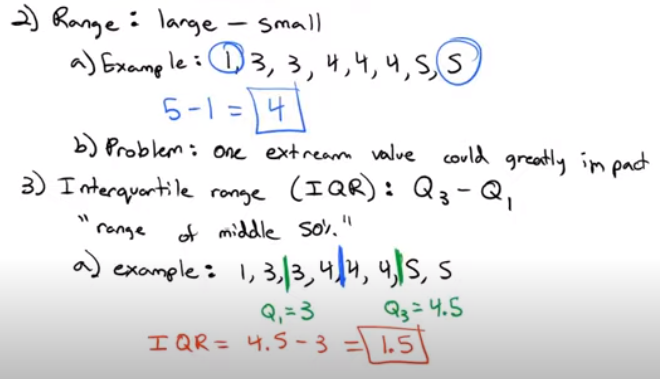 2) Range: large - small
a) Example: 1, 3, 3, 4, 4, 4, 5, 5
5-1 = 4
b) Problem: one extream value could greatly impact
3) Interquartile range (IQR): Q₃ - Q₁
"range of middle 50%."
a) example: 1, 3, 3, 4, 4, 4, 5, 5
Q₁=3 Q₃=4.5
IQR= 4.5-3 = 1.5